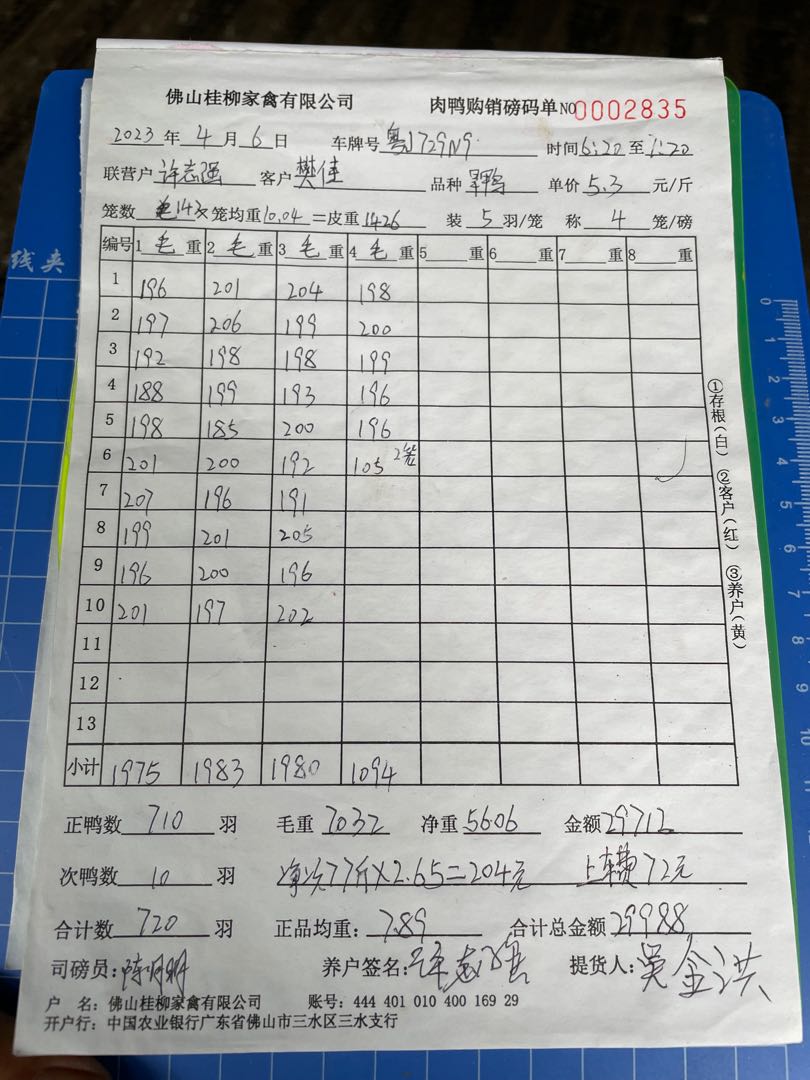 线夹
佛山桂柳家禽有限公司 肉鸭购销磅码单NO 0002835
2023年4月6日 车牌号 粤J729N9 时间6:20至7:20
联营户 许志强 客户 樊佳 品种 鸭 单价5.3元/斤
笼数 142×笼均重10.04=皮重1426 装5羽/笼 称4笼/磅
编号 1毛重 2毛重 3毛重 4毛重 5重 6重 7重 8重
1 196 201 204 198
2 197 206 199 200
3 192 198 198 199
4 188 199 193 196
5 198 185 200 196
6 201 200 192 105 2笼
7 207 196 191
8 199 201 205
9 196 200 196
10 201 197 202
11
12
13
小计 1975 1983 1980 1094
①存根(白) ②客户(红) ③养户(黄)
正鸭数710羽 毛重7032 净重5606 金额29712
次鸭数10羽 净次77斤×2.65=204元 上车费72元
合计数720羽 正品均重:7.89 合计总金额29988
司磅员:陈明明 养户签名:许志强 提货人:吴金洪
户 名:佛山桂柳家禽有限公司 账号:444 401 010 400 169 29
开户行:中国农业银行广东省佛山市三水区三水支行
0
1
2
3
4
5
6
7
8
9
10